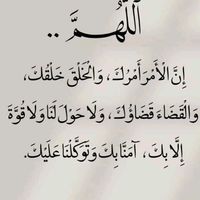 اَللّٰهُمَّ ..
إِنَّ الْأَمْرَ أَمْرُكَ، وَالْخَلْقَ خَلْقُكَ،
وَالْقَضَاءَ قَضَاؤُكَ، وَلَا حَوْلَ لَنَا وَلَا قُوَّةَ
إِلَّا بِكَ، آمَنَّا بِكَ وَتَوَكَّلْنَا عَلَيْكَ.